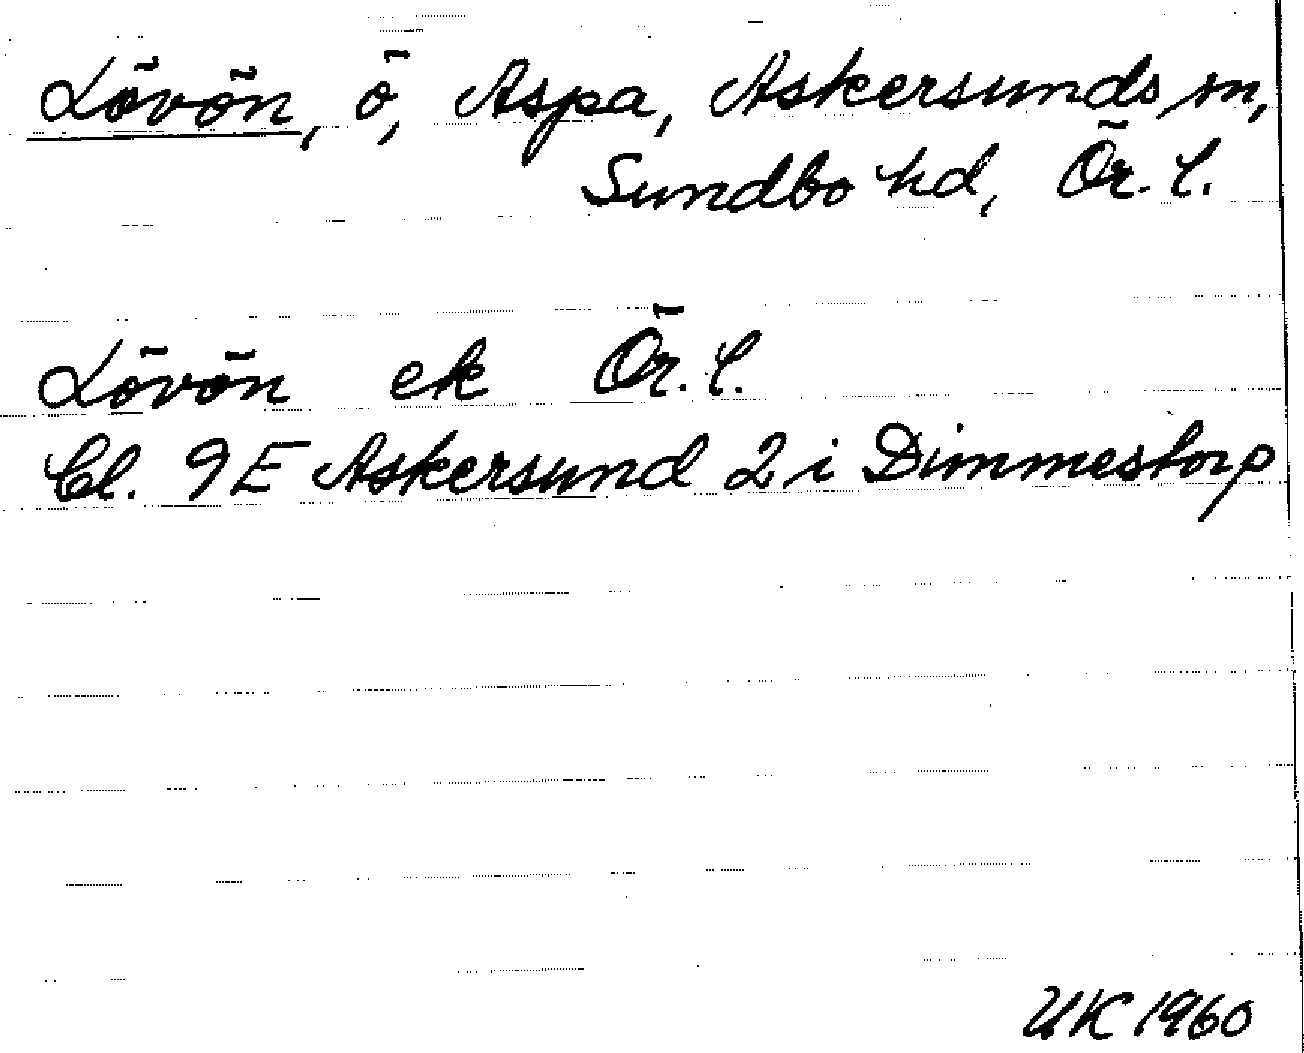 Lövön, ö, Aspa, Askersunds sn,
Sundbo hd, Ör. l.
Lövön ek Ör. l.
Bl. 9E Askersund 2 i Dimmestorp
UK 1960